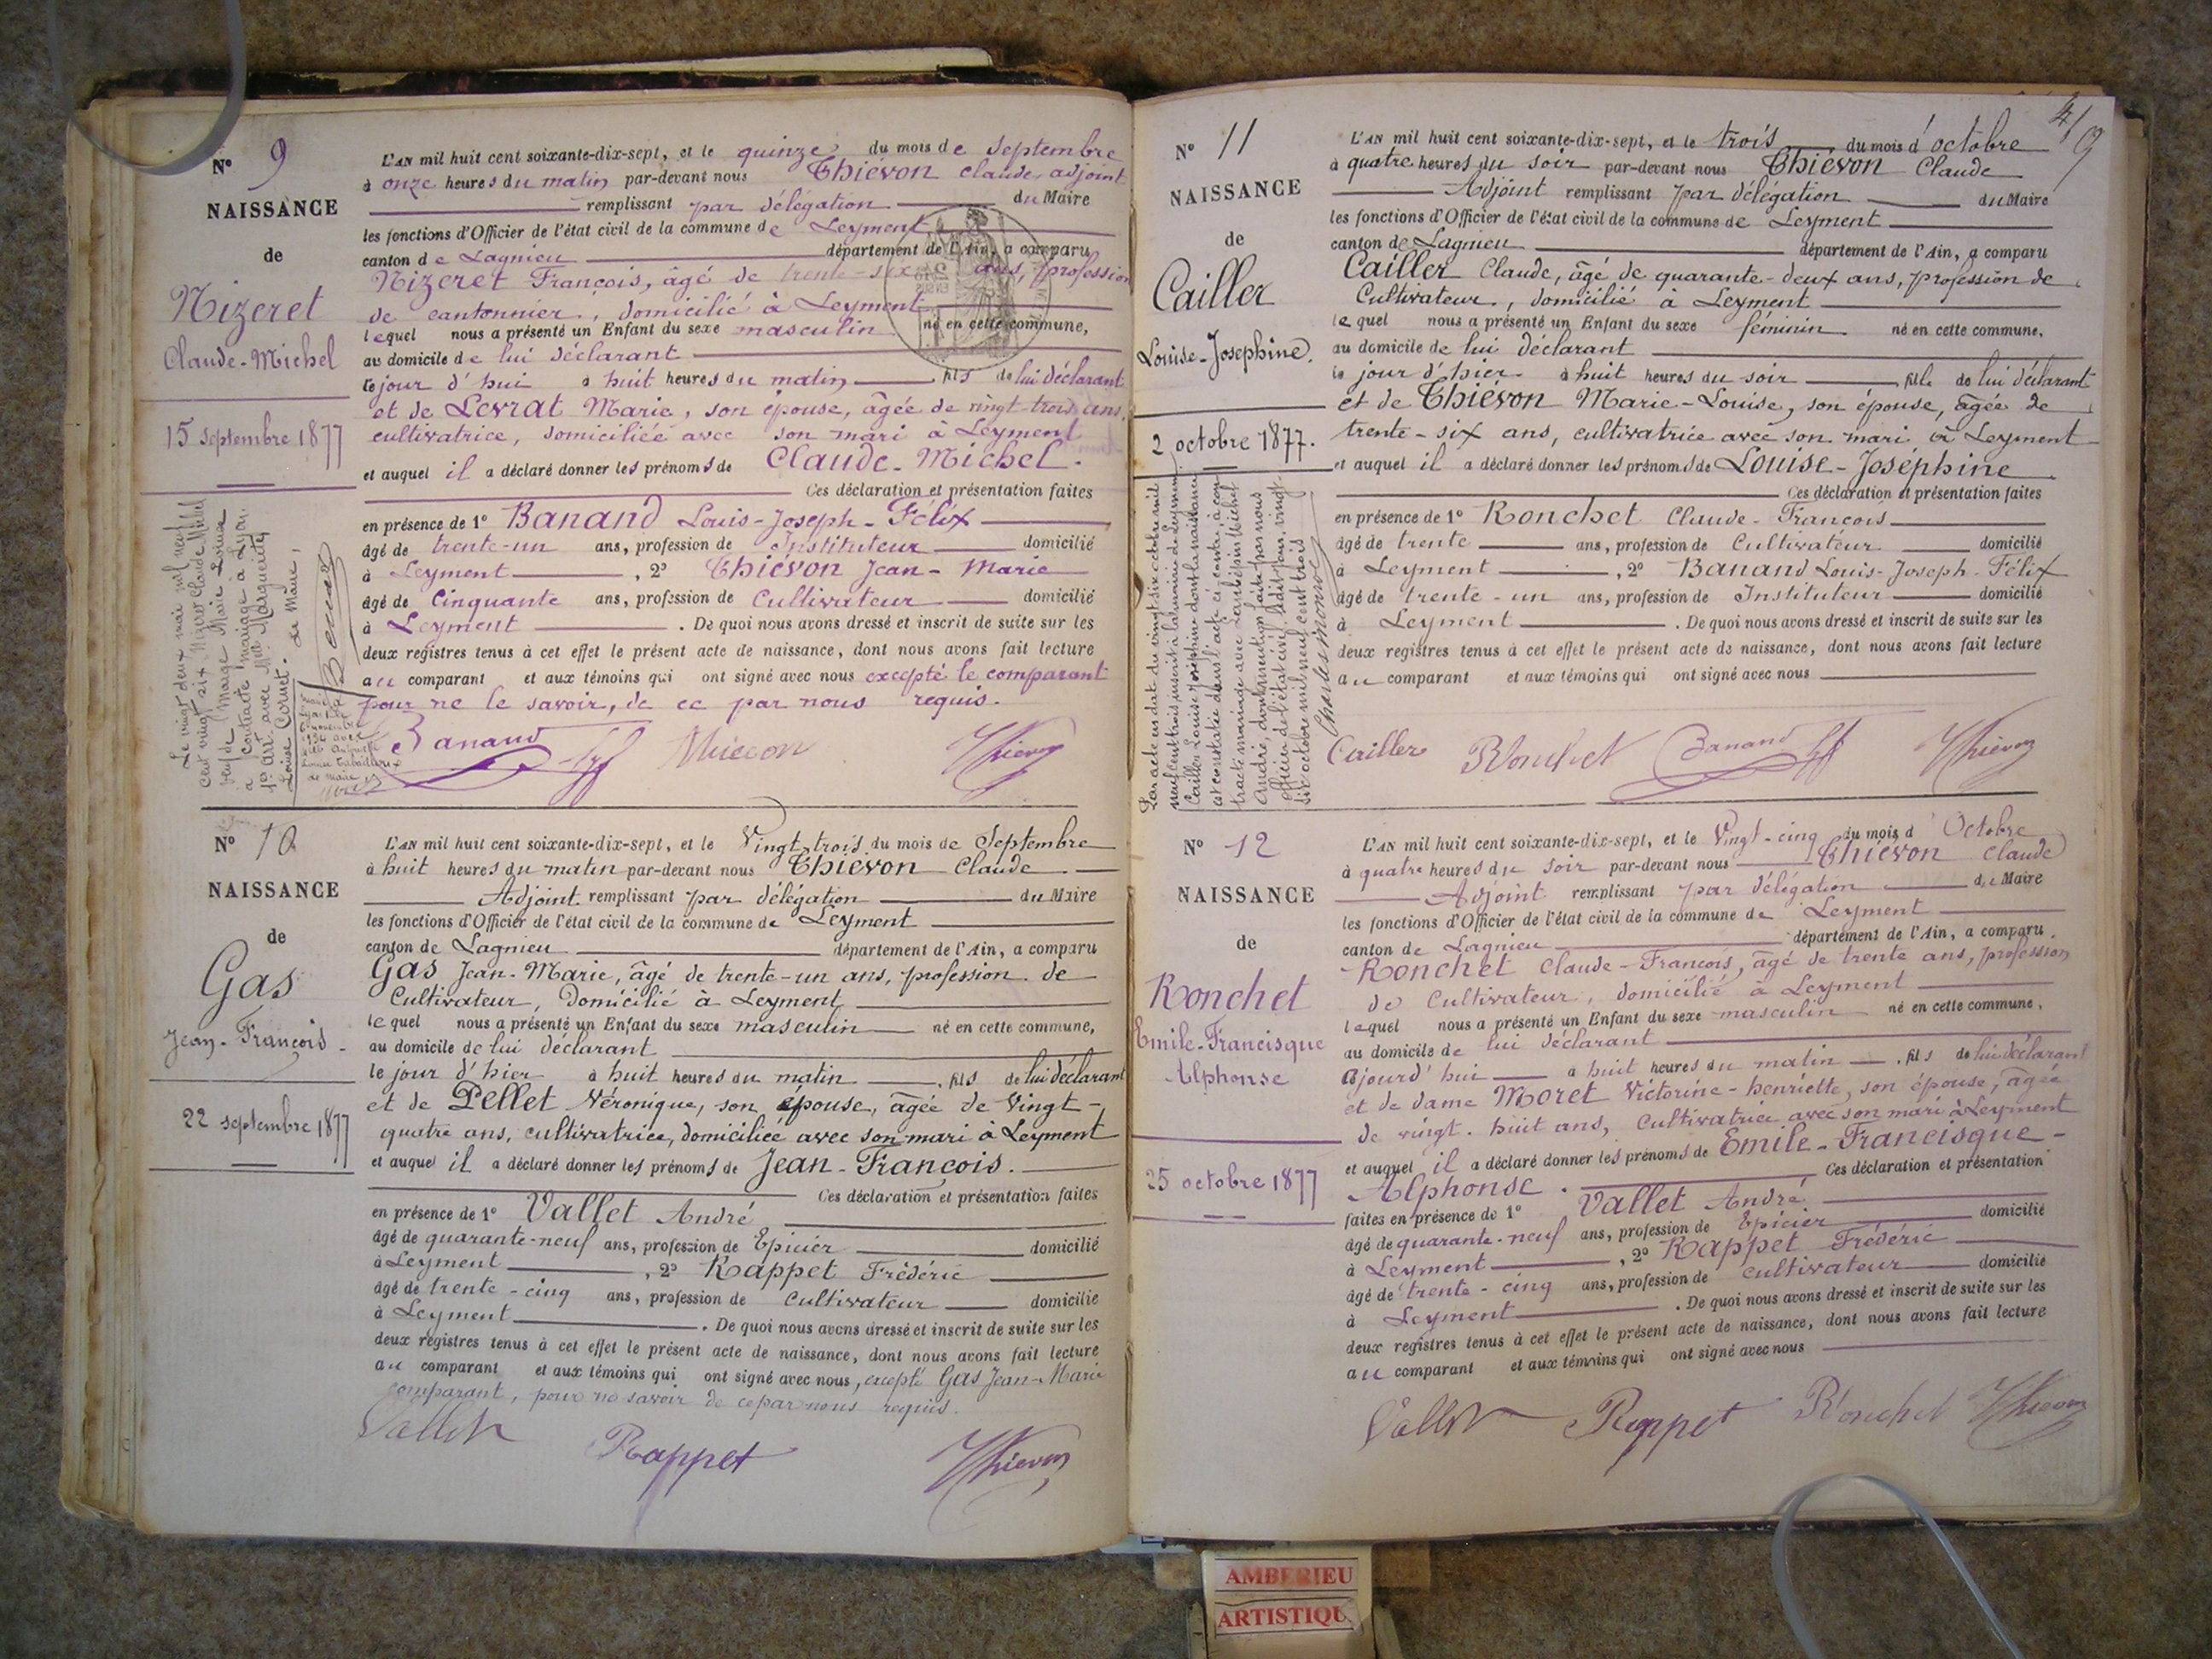 N° 9
NAISSANCE
de
Nizeret
Claude-Michel
15 septembre 1877
L'AN mil huit cent soixante-dix-sept, et le quinze du mois de Septembre
à onze heures du matin par-devant nous Thiévon Claude, adjoint
remplissant par délégation du Maire
les fonctions d'Officier de l'état civil de la commune de Leyment
canton de Lagnieu département de l'Ain, a comparu
Nizeret François, âgé de trente-six ans, profession
de cantonnier, domicilié à Leyment
lequel nous a présenté un Enfant du sexe masculin né en cette commune,
au domicile de lui déclarant
le jour d'hui à huit heures du matin, fils de lui déclarant
et de Levrat Marie, son épouse, âgée de vingt-trois ans,
cultivatrice, domiciliée avec son mari à Leyment
et auquel il a déclaré donner les prénoms de Claude-Michel.
Ces déclaration et présentation faites
en présence de 1° Banand Louis-Joseph-Félix
âgé de trente-un ans, profession de Instituteur domicilié
à Leyment, 2° Thiévon Jean-Marie
âgé de Cinquante ans, profession de Cultivateur domicilié
à Leyment. De quoi nous avons dressé et inscrit de suite sur les
deux registres tenus à cet effet le présent acte de naissance, dont nous avons fait lecture
au comparant et aux témoins qui ont signé avec nous excepté le comparant
pour ne le savoir, de ce par nous requis.
Banand Thiévon Thiévon
Le vingt deux mai mil neuf
cent vingt six Nizeret Claude Michel
veuf de Marie Louise
a contracté mariage à Lyon
1er Art. avec Marguerite
Louise Cornet.
Le Maire,
N° 10
NAISSANCE
de
Gas
Jean-François
22 septembre 1877
L'AN mil huit cent soixante-dix-sept, et le Vingt-trois du mois de Septembre
à huit heures du matin par-devant nous Thiévon Claude
Adjoint remplissant par délégation du Maire
les fonctions d'Officier de l'état civil de la commune de Leyment
canton de Lagnieu département de l'Ain, a comparu
Gas Jean-Marie, âgé de trente-un ans, profession de
Cultivateur, domicilié à Leyment
lequel nous a présenté un Enfant du sexe masculin né en cette commune,
au domicile de lui déclarant
le jour d'hier à huit heures du matin, fils de lui déclarant
et de Pellet Véronique, son épouse, âgée de Vingt-
quatre ans, cultivatrice, domiciliée avec son mari à Leyment
et auquel il a déclaré donner les prénoms de Jean-François.
Ces déclaration et présentation faites
en présence de 1° Vallet André
âgé de quarante-neuf ans, profession de Epicier domicilié
à Leyment, 2° Rappet Frédéric
âgé de trente-cinq ans, profession de Cultivateur domicilié
à Leyment. De quoi nous avons dressé et inscrit de suite sur les
deux registres tenus à cet effet le présent acte de naissance, dont nous avons fait lecture
au comparant et aux témoins qui ont signé avec nous, excepté Gas Jean-Marie
comparant, pour ne savoir de ce par nous requis.
Vallet Rappet Thiévon
4/9
N° 11
NAISSANCE
de
Cailler
Louise-Josephine.
2 octobre 1877.
L'AN mil huit cent soixante-dix-sept, et le trois du mois d'octobre
à quatre heures du soir par-devant nous Thiévon Claude
Adjoint remplissant par délégation du Maire
les fonctions d'Officier de l'état civil de la commune de Leyment
canton de Lagnieu département de l'Ain, a comparu
Cailler Claude, âgé de quarante-deux ans, profession de
Cultivateur, domicilié à Leyment
lequel nous a présenté un Enfant du sexe féminin né en cette commune.
au domicile de lui déclarant
le jour d'hier à huit heures du soir, fille de lui déclarant
et de Thiévon Marie-Louise, son épouse, âgée de
trente-six ans, cultivatrice avec son mari à Leyment
et auquel il a déclaré donner les prénoms de Louise-Joséphine
Ces déclaration et présentation faites
en présence de 1° Ronchet Claude-François
âgé de trente ans, profession de Cultivateur domicilié
à Leyment, 2° Banand Louis-Joseph-Félix
âgé de trente-un ans, profession de Instituteur domicilié
à Leyment. De quoi nous avons dressé et inscrit de suite sur les
deux registres tenus à cet effet le présent acte de naissance, dont nous avons fait lecture
au comparant et aux témoins qui ont signé avec nous
Cailler Ronchet Banand Thiévon
Par acte en date du vingt-six octobre mil
neuf cent trois, inscrit à la mairie de Leyment,
Cailler Louise Joséphine dont la naissance
est constatée dans l'acte ci-contre, a con-
tracté mariage avec Michel
André, dont mention faite par nous
officier de l'état civil, ledit jour, vingt-
six octobre mil neuf cent trois
N° 12
NAISSANCE
de
Ronchet
Emile-Francisque
Alphonse
25 octobre 1877
L'AN mil huit cent soixante-dix-sept, et le Vingt-cinq du mois d'Octobre
à quatre heures du soir par-devant nous Thiévon Claude
Adjoint remplissant par délégation du Maire
les fonctions d'Officier de l'état civil de la commune de Leyment
canton de Lagnieu département de l'Ain, a comparu.
Ronchet Claude-François, âgé de trente ans, profession
de Cultivateur, domicilié à Leyment
lequel nous a présenté un Enfant du sexe masculin né en cette commune,
au domicile de lui déclarant
aujourd'hui à huit heures du matin, fils de lui déclarant
et de dame Moret Victorine-henriette, son épouse, âgée
de vingt-huit ans, Cultivatrice avec son mari à Leyment
et auquel il a déclaré donner les prénoms de Emile-Francisque-
Alphonse. Ces déclaration et présentation
faites en présence de 1° Vallet André
âgé de quarante-neuf ans, profession de Epicier domicilié
à Leyment, 2° Rappet Frédéric
âgé de trente-cinq ans, profession de cultivateur domicilié
à Leyment. De quoi nous avons dressé et inscrit de suite sur les
deux registres tenus à cet effet le présent acte de naissance, dont nous avons fait lecture
au comparant et aux témoins qui ont signé avec nous
Vallet Rappet Ronchet Thiévon
AMBERIEU
ARTISTIQU